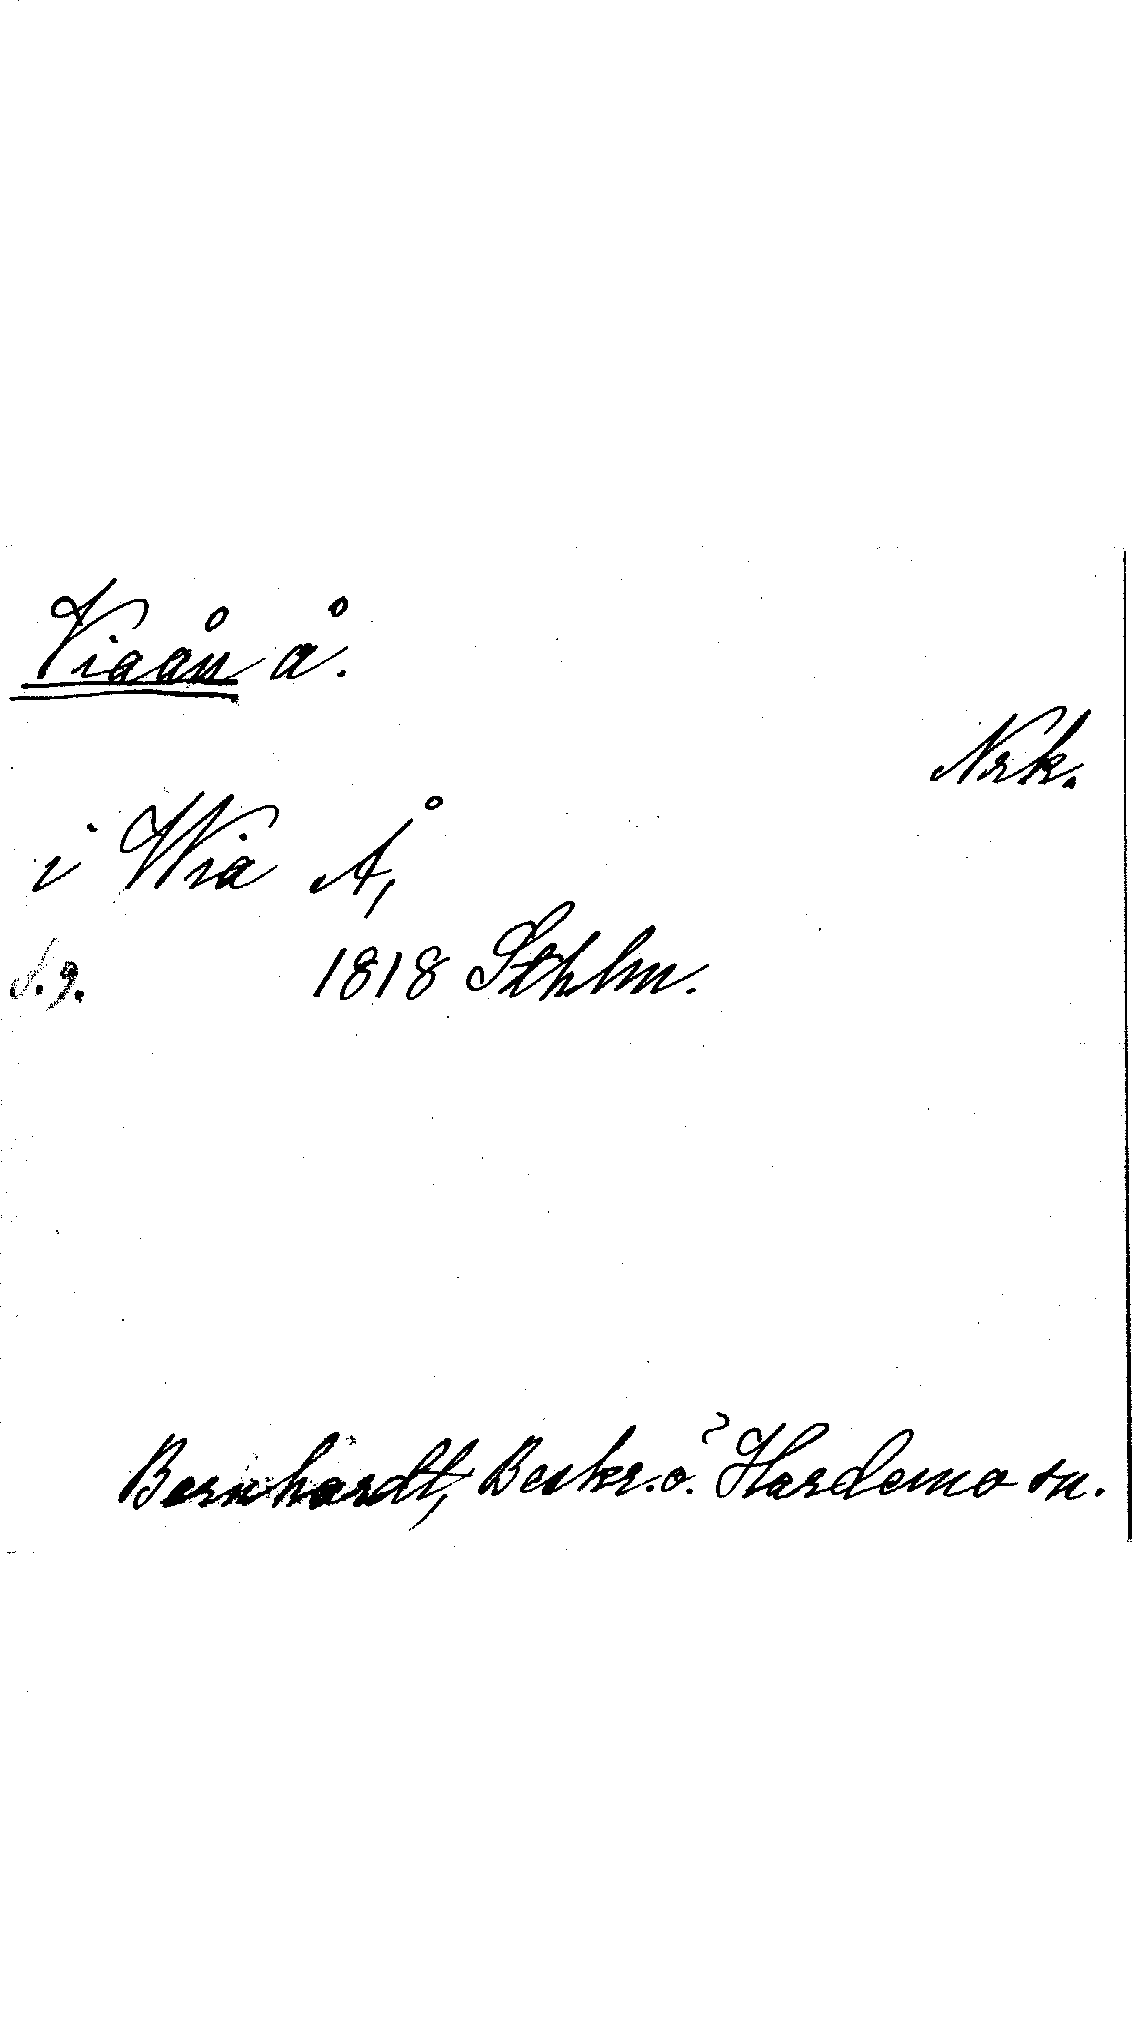 Viaån å.
Nrk.
i Wia Å,
s. 9. 1818 Sthlm.
Bernhardt, Beskr. ö. Hardemo sn.